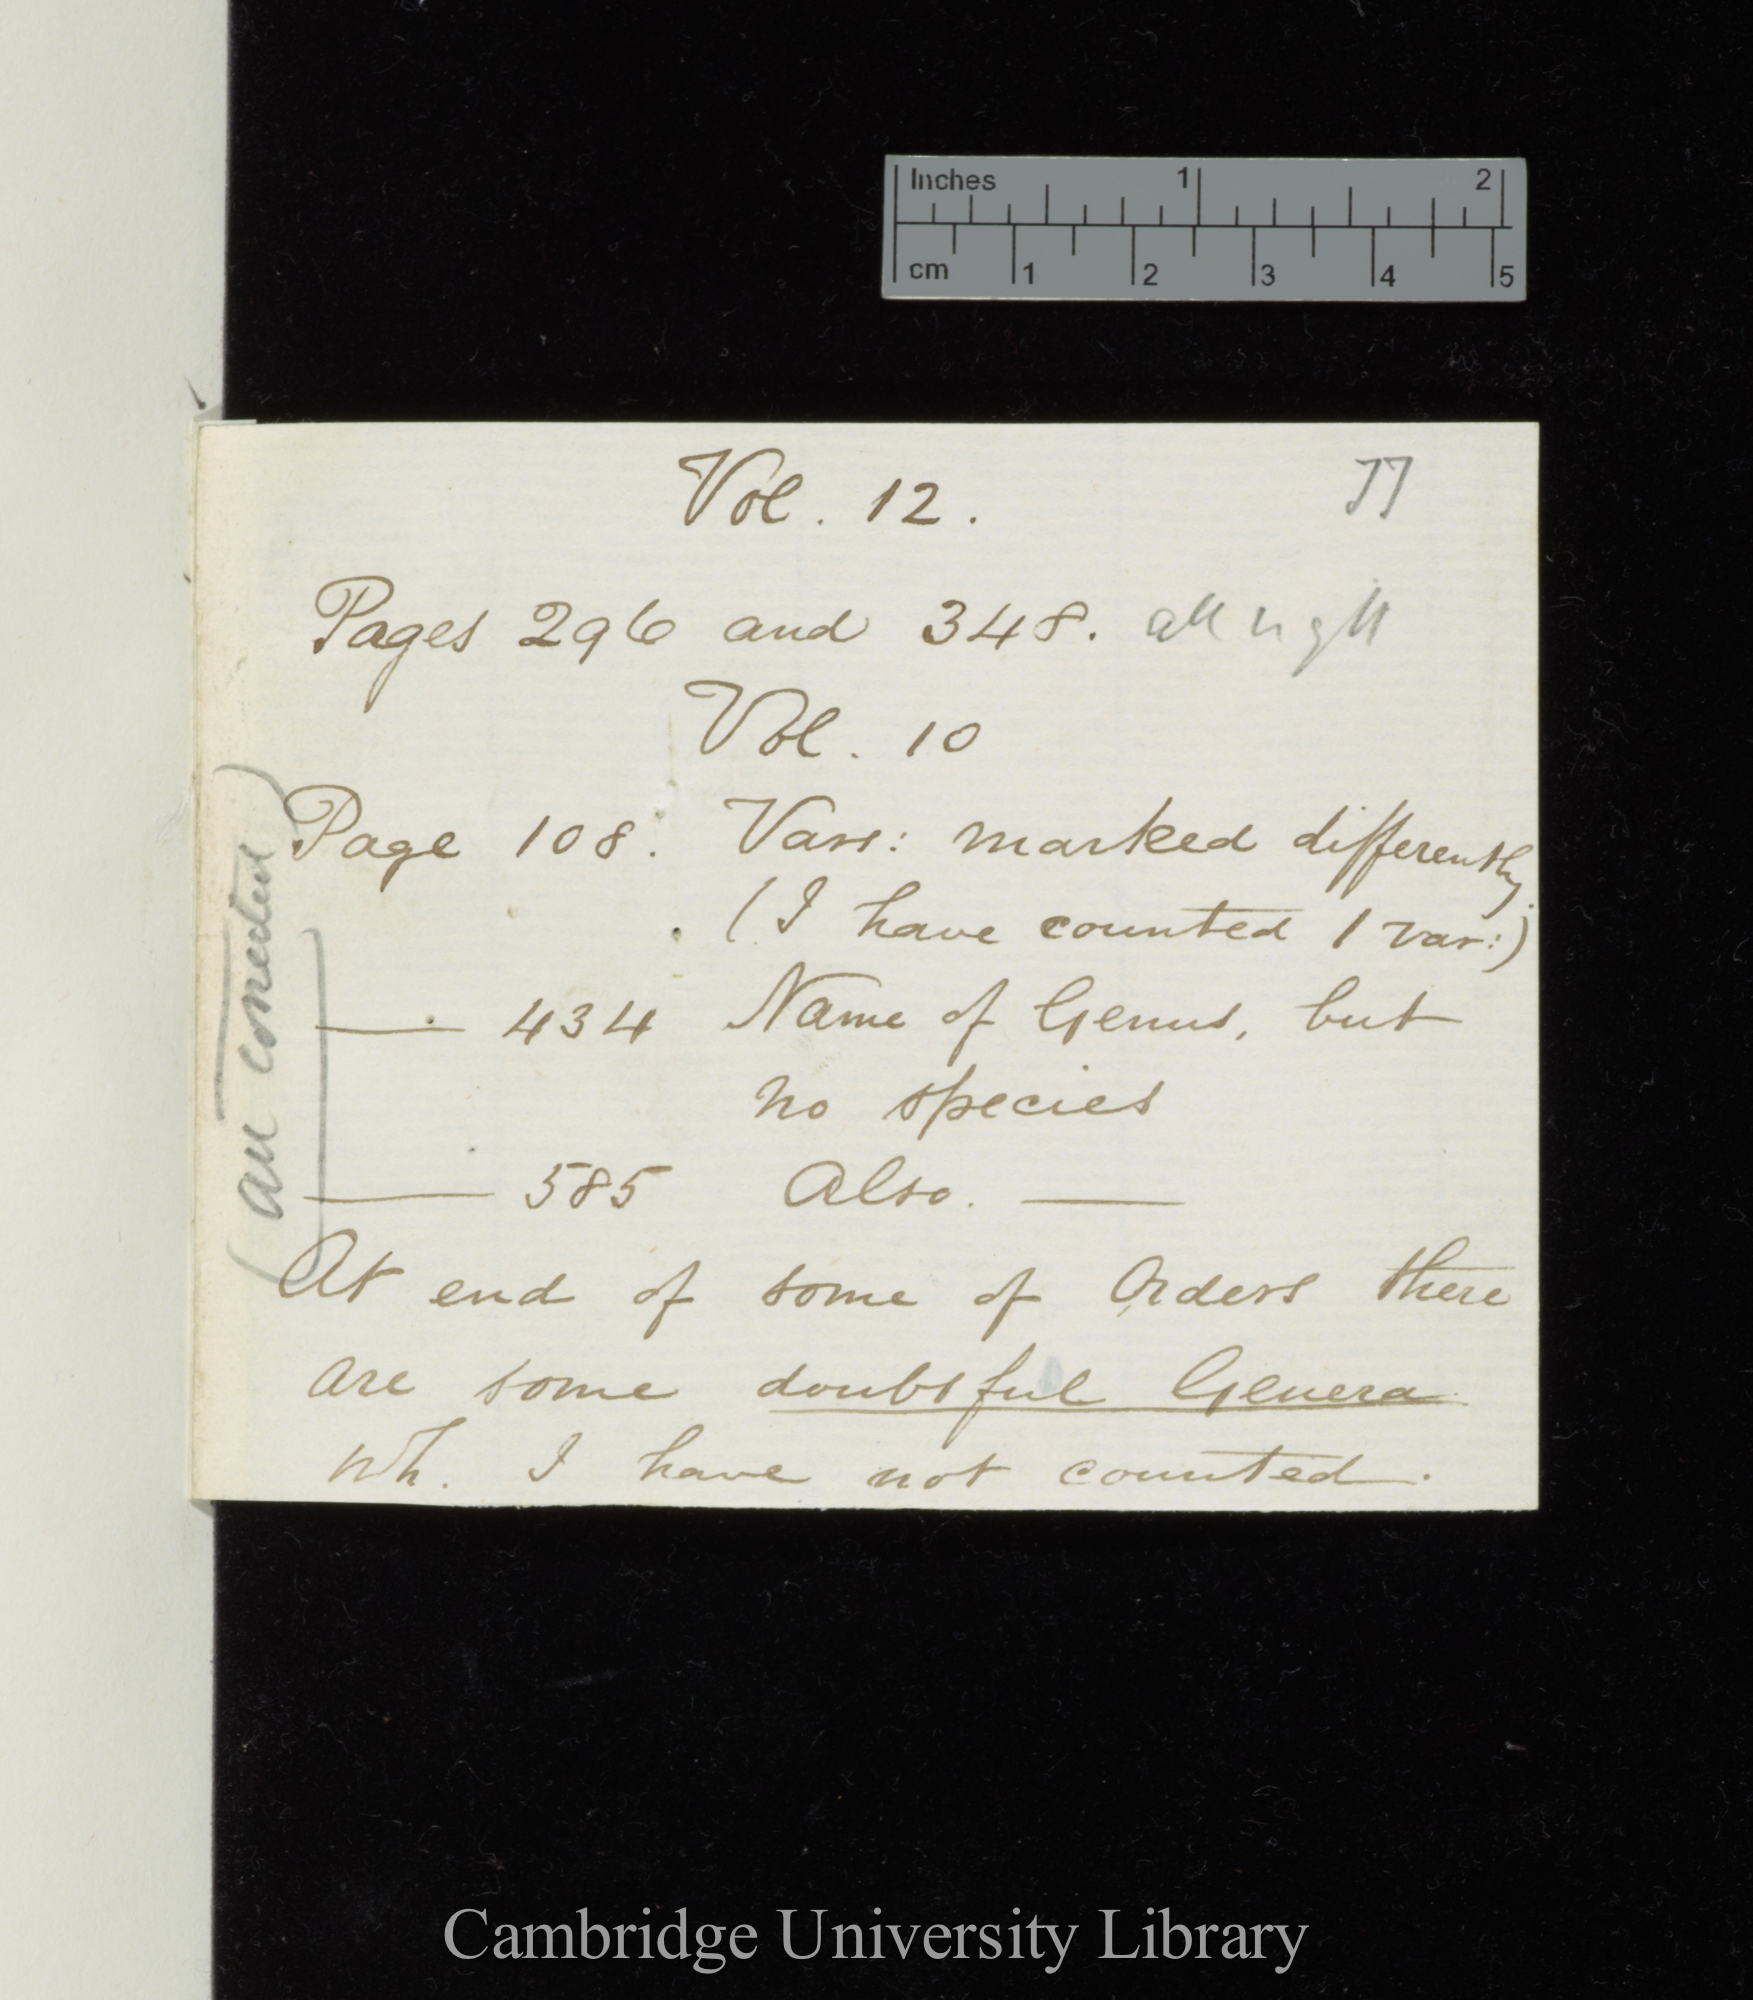 Inches 1 2
cm 1 2 3 4 5
Vol. 12.
77
Pages 296 and 348. all right
Vol. 10
Page 108. Vars: marked differently.
(I have counted 1 var:)
—— 434 Name of Genus, but
no species
—— 585 Also. ——
(all corrected)
At end of some of Orders there
are some doubtful Genera
wh. I have not counted.
Cambridge University Library